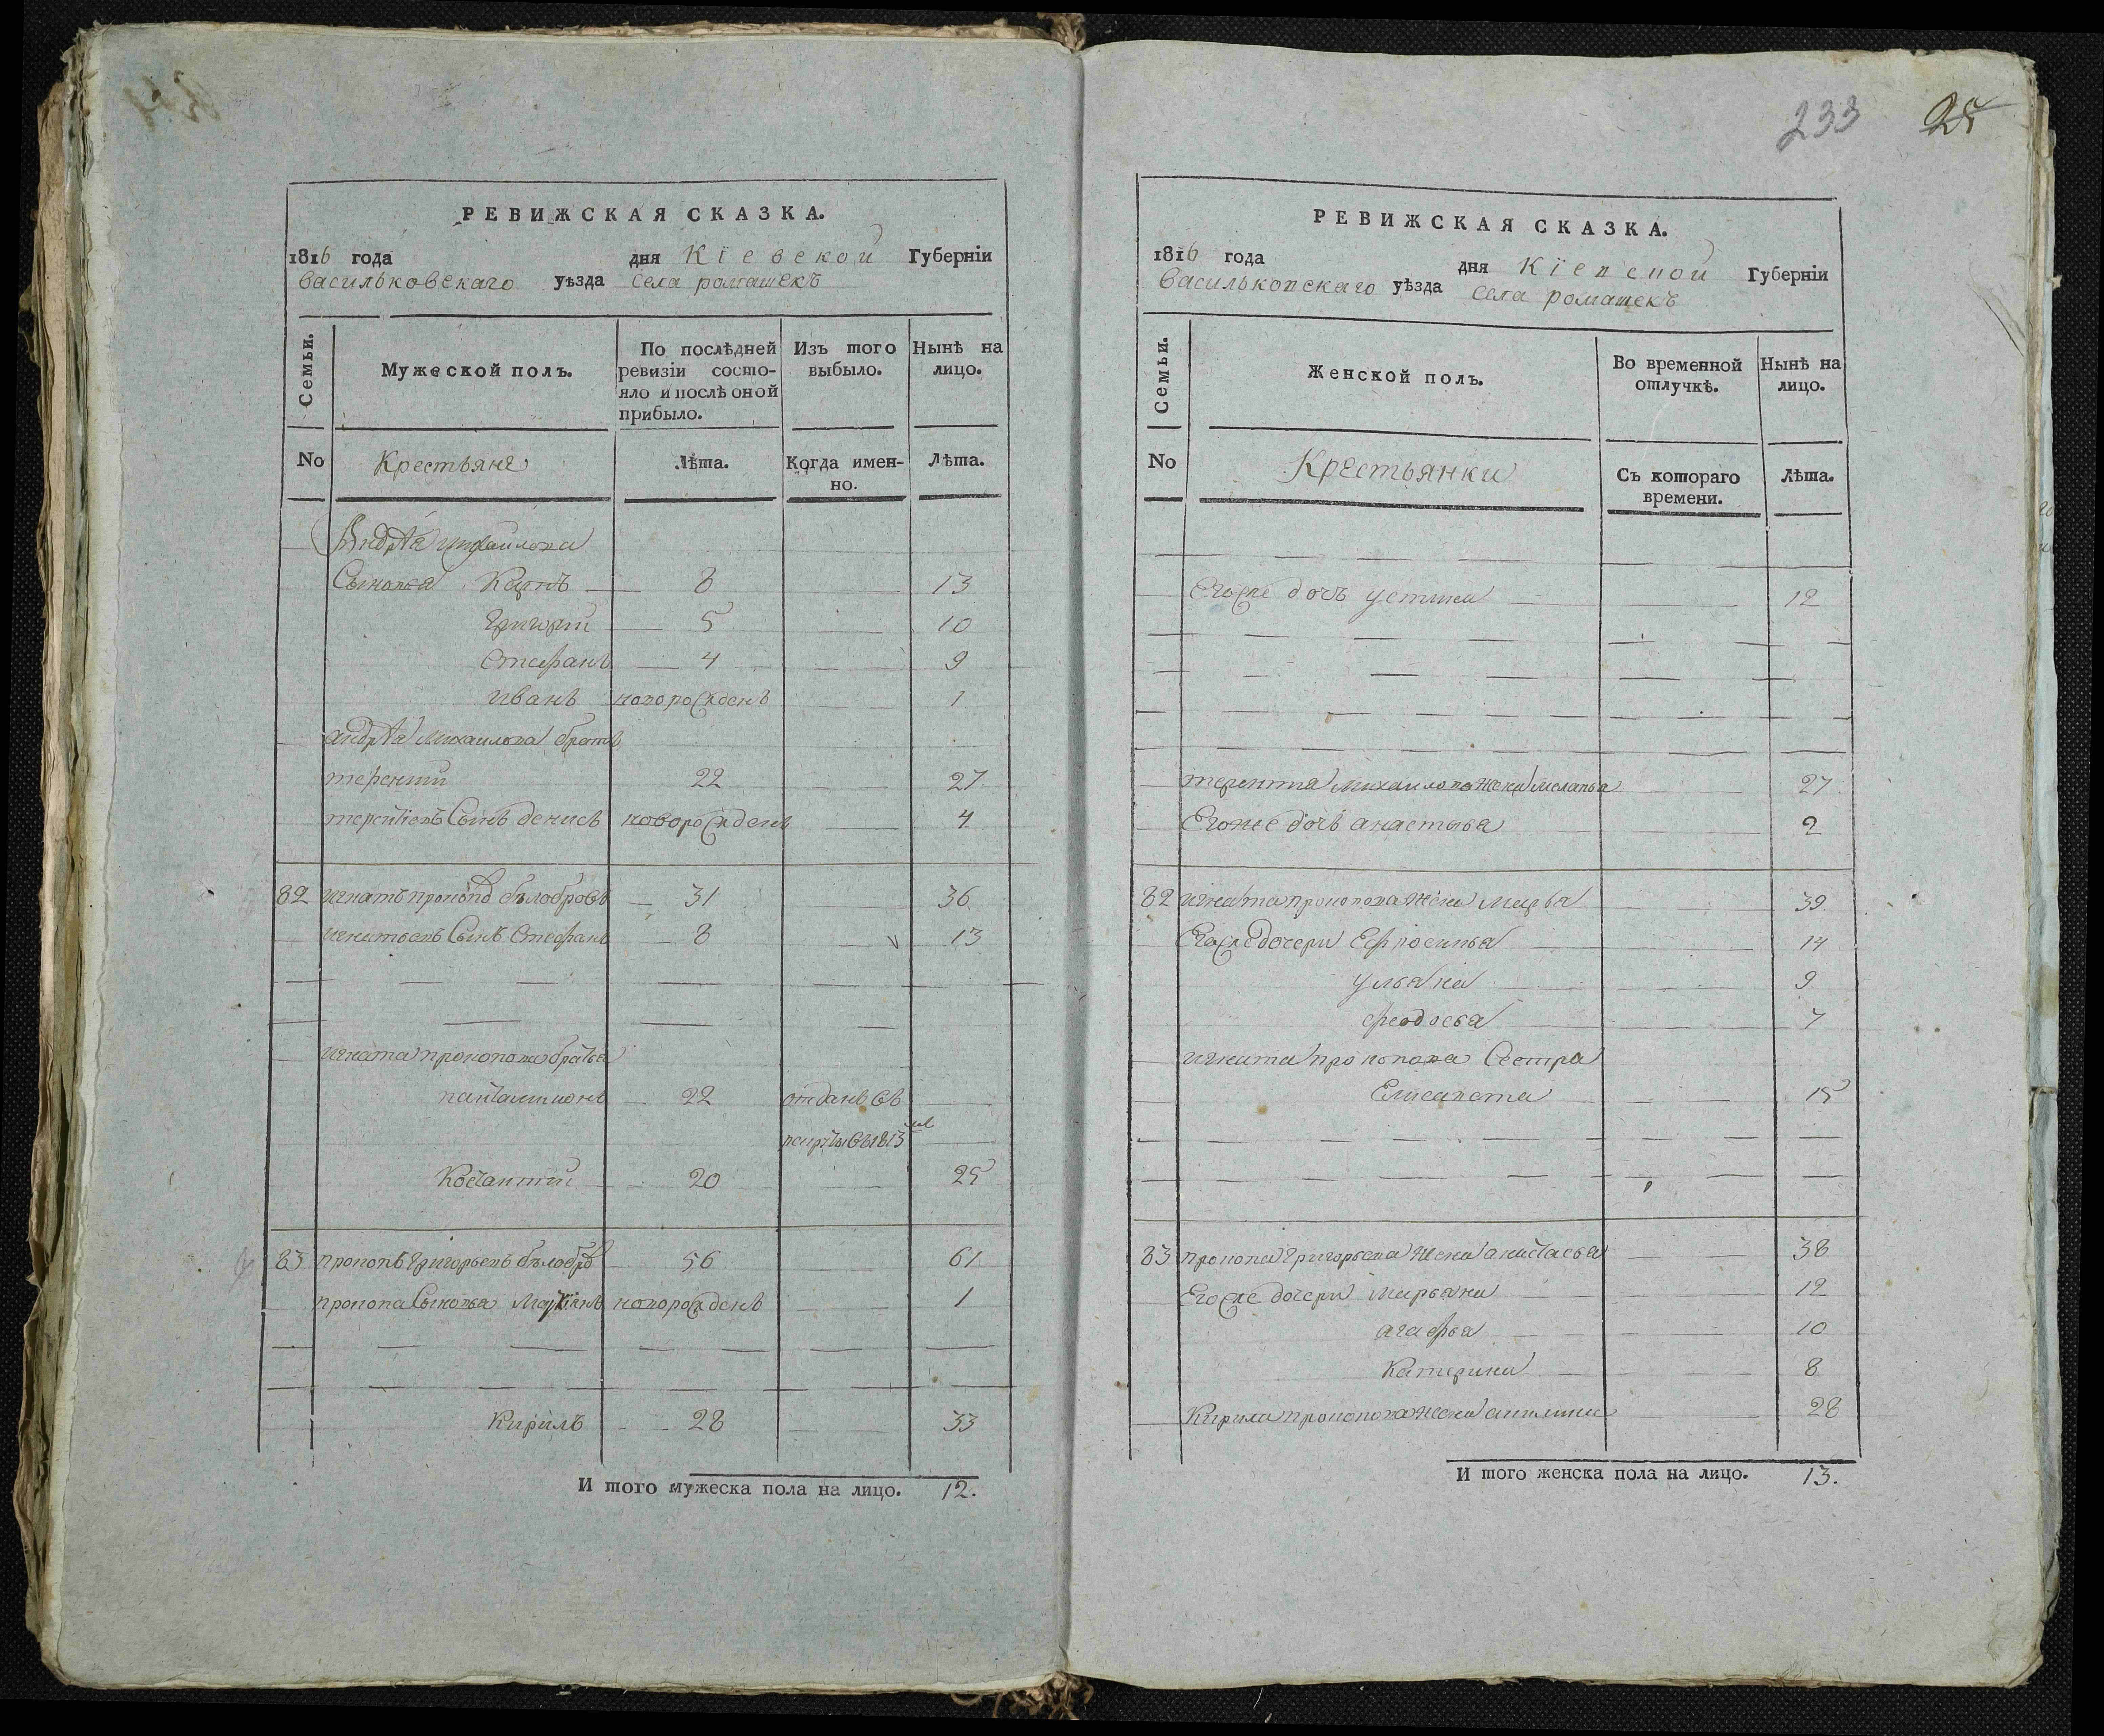 РЕВИЖСКАЯ СКАЗКА.
1816 года дня Кіевской Губерніи
Васильковскаго уѣзда села ромашекъ
Семьи.
Мужеской полъ.
По послѣдней ревизіи состо-
яло и послѣ оной
прибыло.
Изъ того
выбыло.
Нынѣ на
лицо.
No
Крестьяне
Лѣта.
Когда имен-
но.
Лѣта.
Андрѣя михаилова
Сыновья Карпъ 8 13
Григорій 5 10
Стефанъ 4 9
иванъ новорожденъ 1
андрѣя михаилова братъ
терентий 22 27
терентіевъ Сынъ денисъ новорожденъ 4
82 игнатъ прокопов бѣлобровъ 31 36
игнатьевъ Сынъ Стефанъ 8 13
игната прокопова братья
панталимонъ 22 отданъ въ
рекруты въ 1813мъ
Костантий 20 25
83 прокопъ григорьевъ бѣлобро 56 61
прокопа Сыновья Маркіянъ новорожденъ 1
Кирилъ 28 33
И того мужеска пола на лицо. 12.
233 25
РЕВИЖСКАЯ СКАЗКА.
1816 года дня Кіевской Губерніи
Васильковскаго уѣзда села ромашекъ
Семьи.
Женской полъ.
Во временной
отлучкѣ.
Нынѣ на
лицо.
No
Крестьянки
Съ котораго
времени.
Лѣта.
Егоже дочь устина 12
терентия михаилова жена меланья 27
Егоже дочь анастасья 2
82 игната прокопова жена марья 39
Егоже дочери Ефросинья 14
ульяна 9
феодосья 7
игната прокопова Сестра
Елисавета 15
83 прокопа григорьева жена анастасья 38
Егоже дочери марьяна 12
агафья 10
Катерина 8
Кирила прокопова жена 28
И того женска пола на лицо. 13.